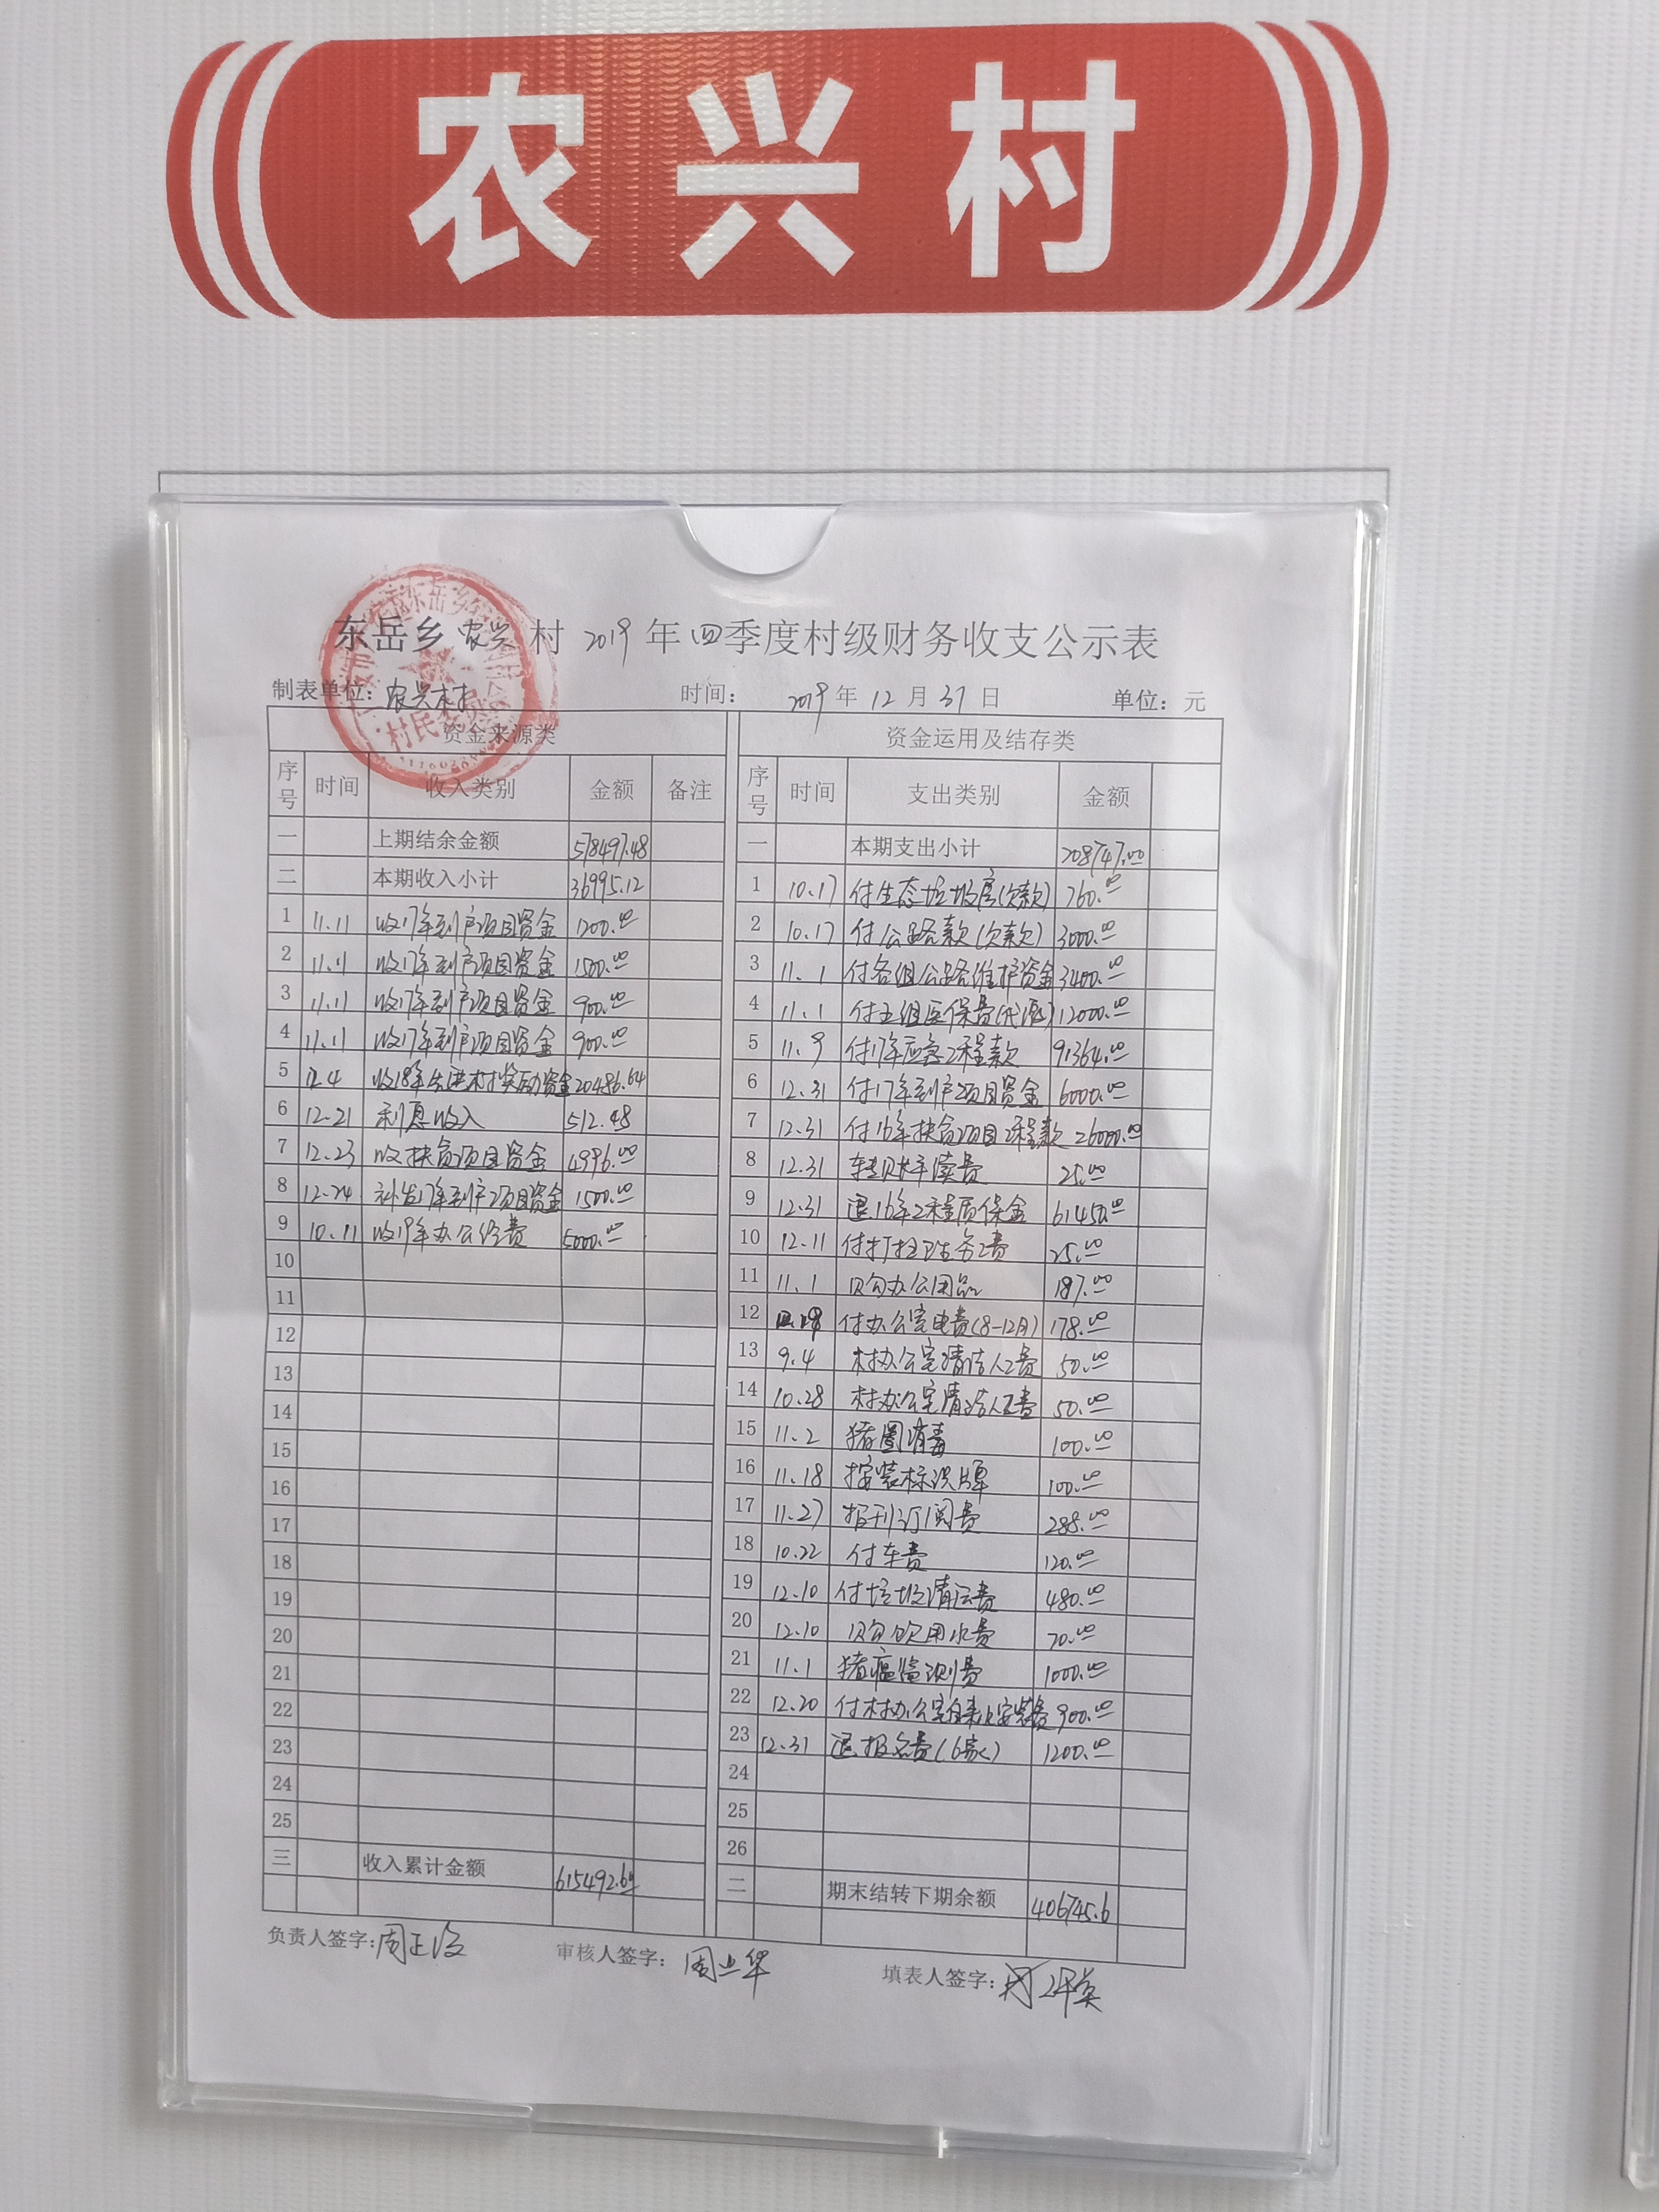 农兴村
东岳乡农兴村2019年四季度村级财务收支公示表
制表单位：农兴村 时间： 2019年12月31日 单位：元
资金来源类 资金运用及结存类
序号 时间 收入类别 金额 备注 序号 时间 支出类别 金额
一 上期结余金额 578497.48 一 本期支出小计 208747.00
二 本期收入小计 36995.12 1 10.17 付生态垃圾房(欠款) 760.00
1 11.11 收17年到户项目资金 1200.00 2 10.17 付公路款(欠款) 3000.00
2 11.11 收17年到户项目资金 1500.00 3 11.1 付各组公路维护资金 3400.00
3 11.11 收17年到户项目资金 900.00 4 11.1 付五组医保费 12000.00
4 11.11 收17年到户项目资金 900.00 5 11.9 付17年应急工程款 91364.00
5 12.4 收18年先进村奖励资金 20486.64 6 12.31 付17年到户项目资金 6000.00
6 12.21 利息收入 512.48 7 12.31 付16年扶贫项目工程款 26000.00
7 12.23 收扶贫项目资金 4996.00 8 12.31 转账手续费 25.00
8 12.24 补发17年到户项目资金 1500.00 9 12.31 退16年工程质保金 61450.00
9 10.11 收19年办公经费 5000.00 10 12.11 付打扫卫生务工费 25.00
10 11 11.1 购办公用品 187.00
11 12 付办公室电费(8-12月) 178.00
12 13 9.4 村办公室清洁人工费 50.00
13 14 10.28 村办公室清洁人工费 50.00
14 15 11.2 猪圈消毒 100.00
15 16 11.18 按装标识牌 100.00
16 17 11.27 报刊订阅费 288.00
17 18 10.22 付车费 120.00
18 19 12.10 付垃圾清运费 480.00
19 20 12.10 购饮用水费 70.00
20 21 11.1 猪瘟监测费 1000.00
21 22 12.20 付村办公室自来水安装费 900.00
22 23 12.31 退报名费(6家) 1200.00
23 24
24 25
25 26
三 收入累计金额 615492.60 二 期末结转下期余额 406745.6
负责人签字： 审核人签字： 填表人签字：